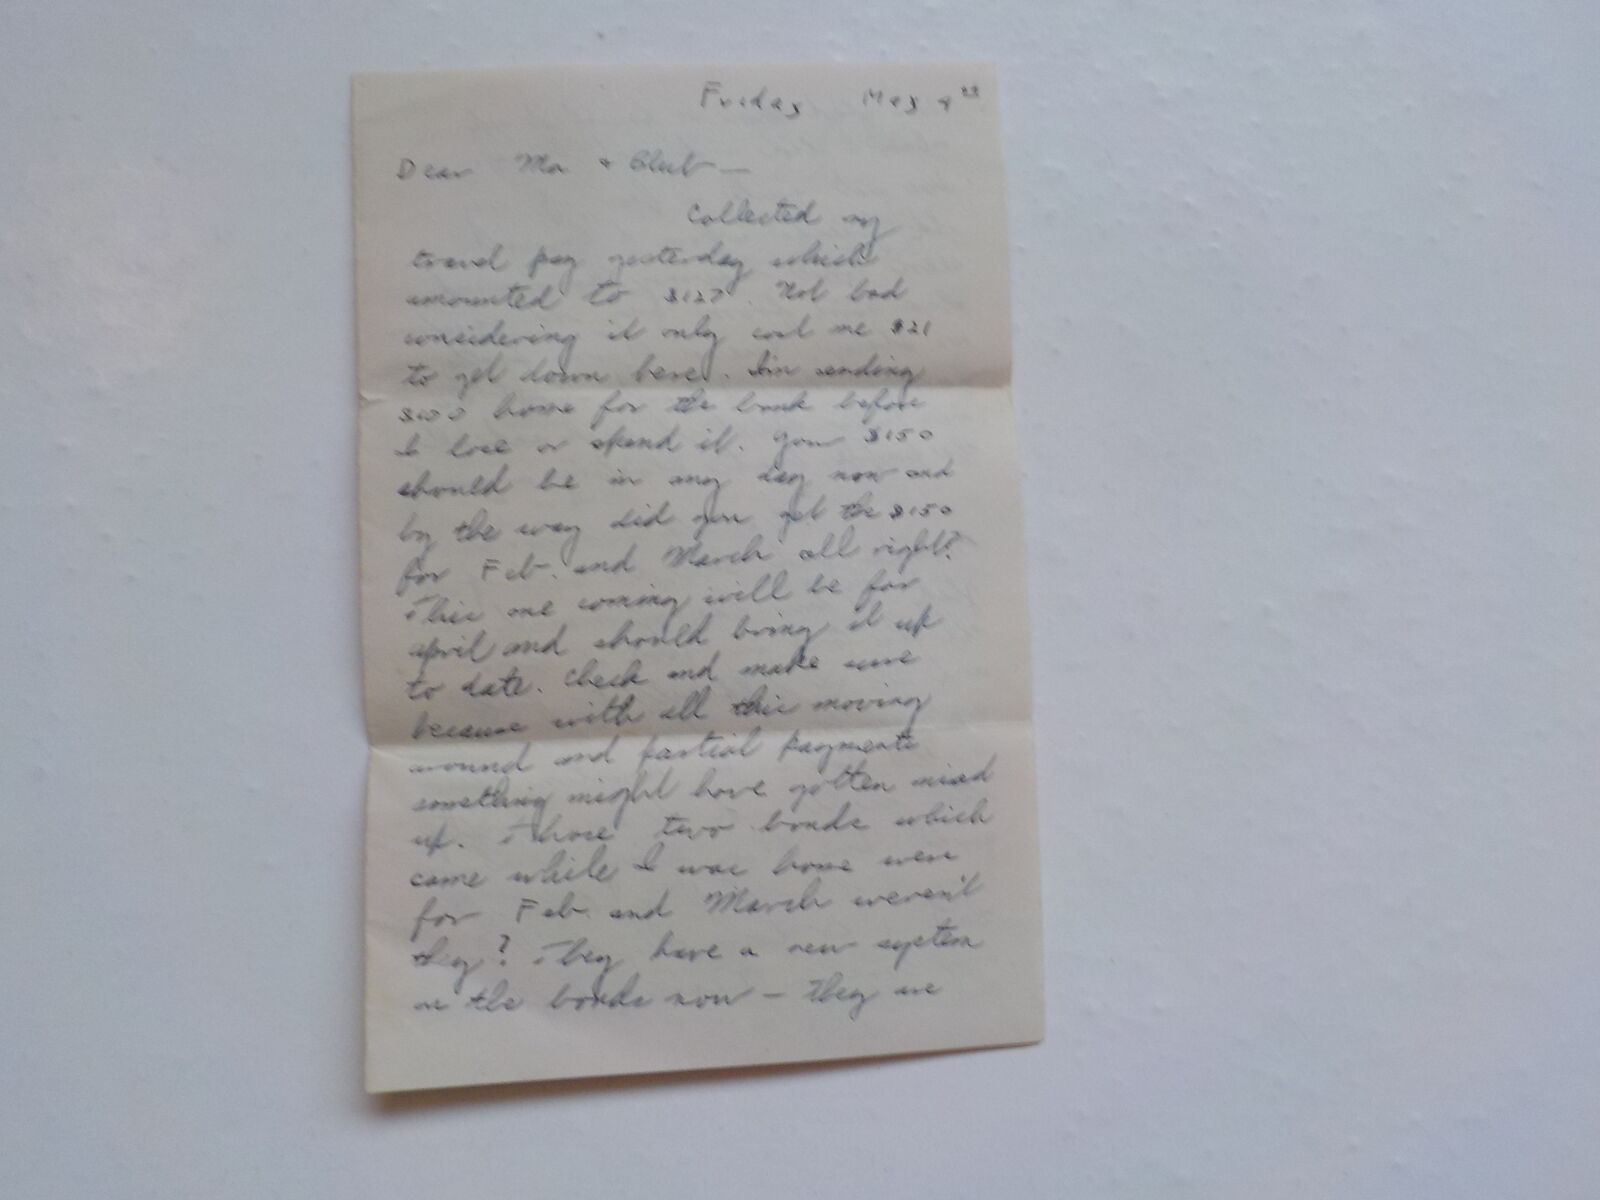 Friday May 4th
Dear Ma +
Collected my
travel pay yesterday which
amounted to $127. Not bad
considering it only cost me $21
to get down here. I'm sending
$100 home for the bank before
I lose or spend it. Your $150
should be in any day now and
by the way did you get the $150
for Feb. and March all right?
This one coming will be for
april and should bring it up
to date. Check and make sure
because with all this moving
around and partial payments
something might have gotten mixed
up. Those two bonds which
came while I was home were
for Feb. and March weren't
they? They have a new system
on the bonds now - They are